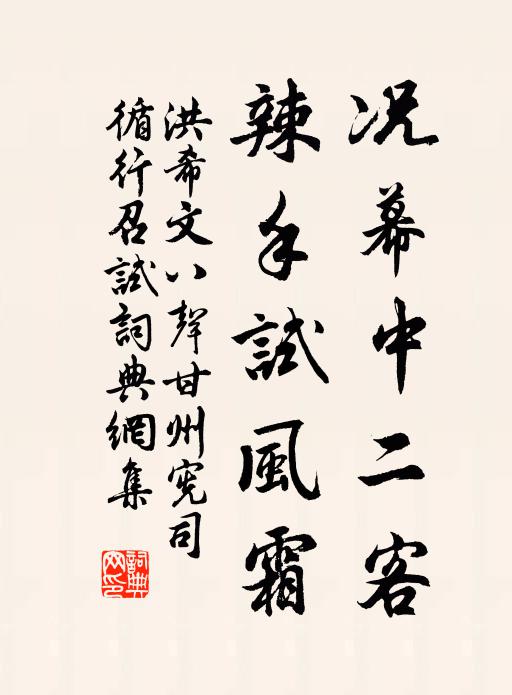 况幕中二客
辣手試風霜
洪希文八聲甘州憲司
循行召試詞典網集
詞典網印